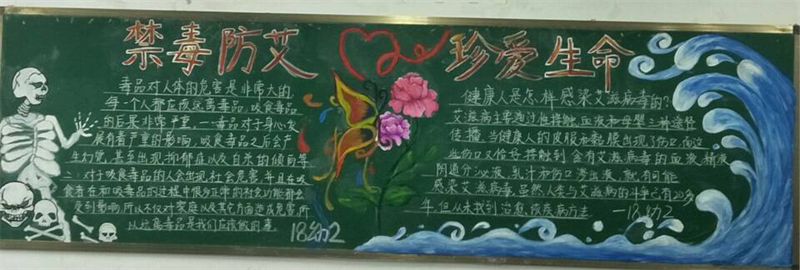 禁毒防艾
珍爱生命
毒品对人体的危害是非常大的,
每一个人都应该远离毒品,吸食毒品
的后果非常严重,一:毒品对于身心发
展有着严重的影响,吸食毒品之后会产
生幻觉,甚至出现抑郁症以及自杀的倾向等
二:对于吸食毒品的人会出现社会危害并且在吸
食者在和吸毒品的过程中很多正常的社会功能都会
受到影响,所以不仅对家庭以及其它方面造成危害,所
以远离毒品是我们应该做的事
18幼2
健康人是怎样感染艾滋病毒的?
艾滋病主要通过性接触,血液和母婴三种途径
传播,当健康人的皮肤和黏膜出现了伤口,而这
些伤口又恰好接触到含有艾滋病毒的血液,精液
阴道分泌液,乳汁和伤口渗出液,就有可能
感染艾滋病毒,虽然人类与艾滋病的斗争已有20多
年,但从未找到治愈该疾病方法
—18幼2